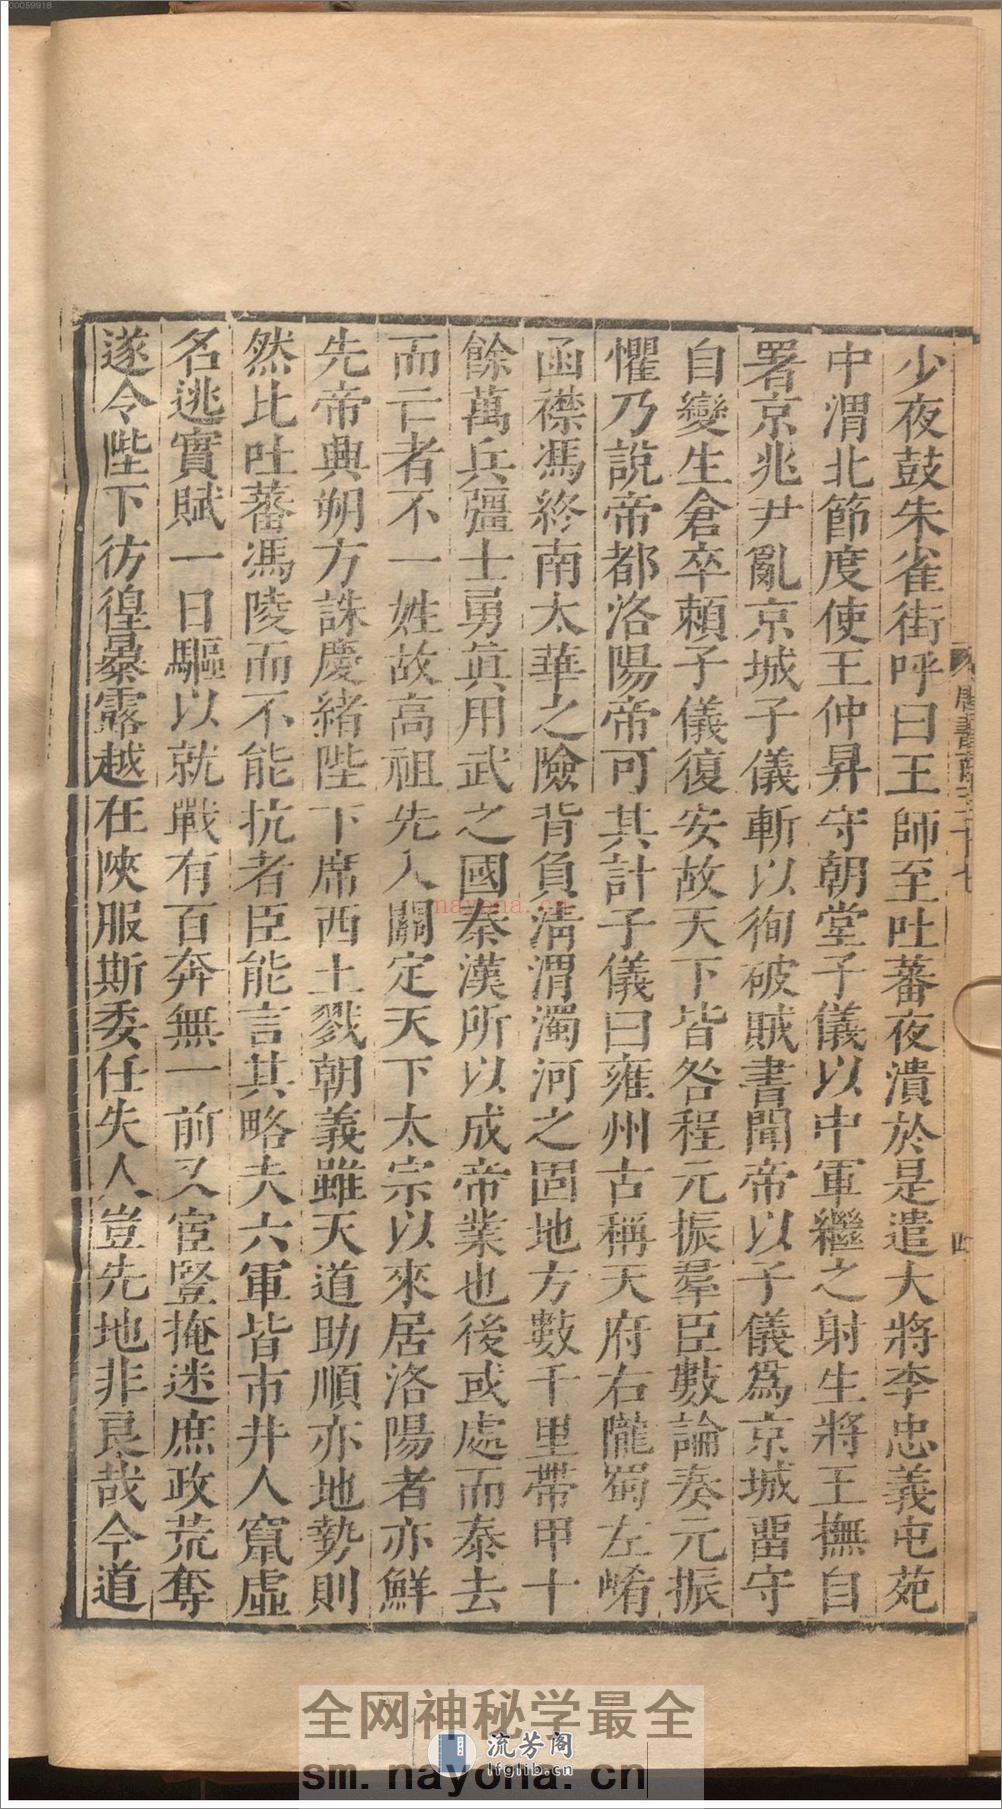 少夜鼓朱雀街呼曰王師至吐蕃夜潰於是遣大將李忠義屯苑
中渭北節度使王仲昇守朝堂子儀以中軍繼之射生將王撫自
署京兆尹亂京城子儀斬以徇破賊書聞帝以子儀爲京城畱守
自變生倉卒賴子儀復安故天下皆咎程元振羣臣數論奏元振
懼乃說帝都洛陽帝可其計子儀曰雍州古稱天府右隴蜀左崤
函襟馮終南太華之險背負淸渭濁河之固地方數千里帶甲十
餘萬兵彊士勇眞用武之國秦漢所以成帝業也後或處而泰去
而亡者不一姓故高祖先入關定天下太宗以來居洛陽者亦鮮
先帝興朔方誅慶緒陛下席西土戮朝義雖天道助順亦地勢則
然比吐蕃馮陵而不能抗者臣能言其略夫六軍皆市井人竄虛
名逃實賦一日驅以就戰有百奔無一前又宦豎掩迷庶政荒奪
遂令陛下彷徨暴露越在陝服斯委任失人豈先地非良哉今道
00059918
nayona.cn
全网神秘学最全
流芳阁
lfglib.cn
sm.nayona.cn